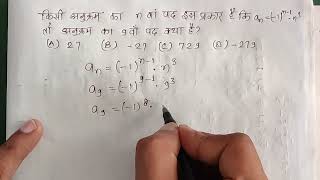 किसी अनुक्रम का n वां पद इस प्रकार है कि aₙ=(-1)ⁿ⁻¹·n³
तो अनुक्रम का 9वाँ पद क्या है?
(A) 27 (B) -27 (C) 729 (D) -729
aₙ = (-1)ⁿ⁻¹·n³
a₉ = (-1)⁹⁻¹·9³
a₉ = (-1)⁸·